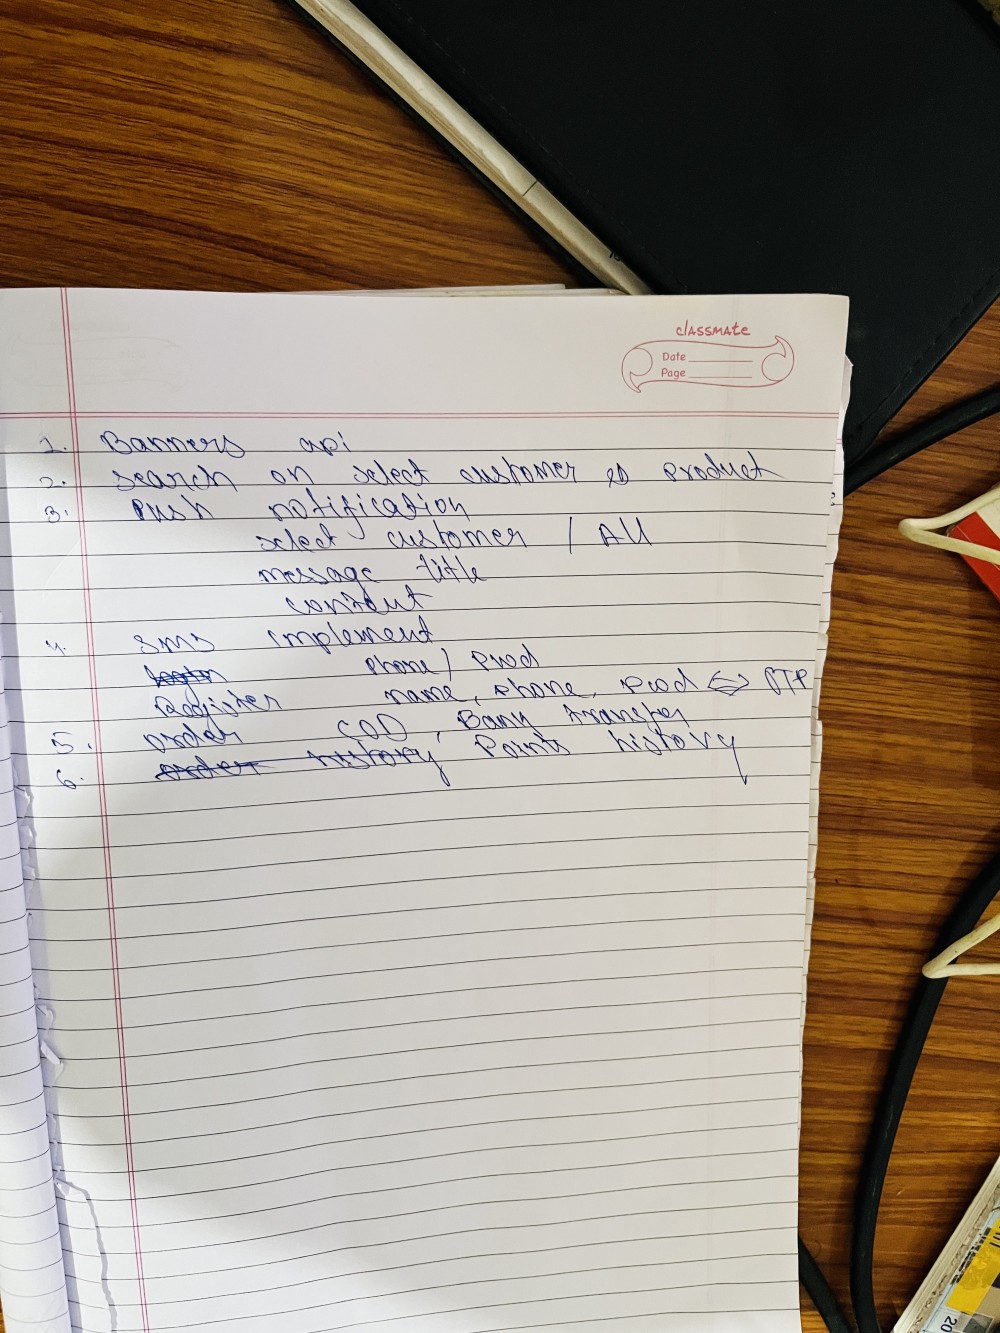 classmate
Date
Page
1. Banners api
2. search on select customer & product
3. Push notification
select customer / All
message title
content
4. SMS implement
login phone / pwd
Register name, phone, pwd ⇔ OTP
5. order COD, Bank transfer
6. order history Points history
20